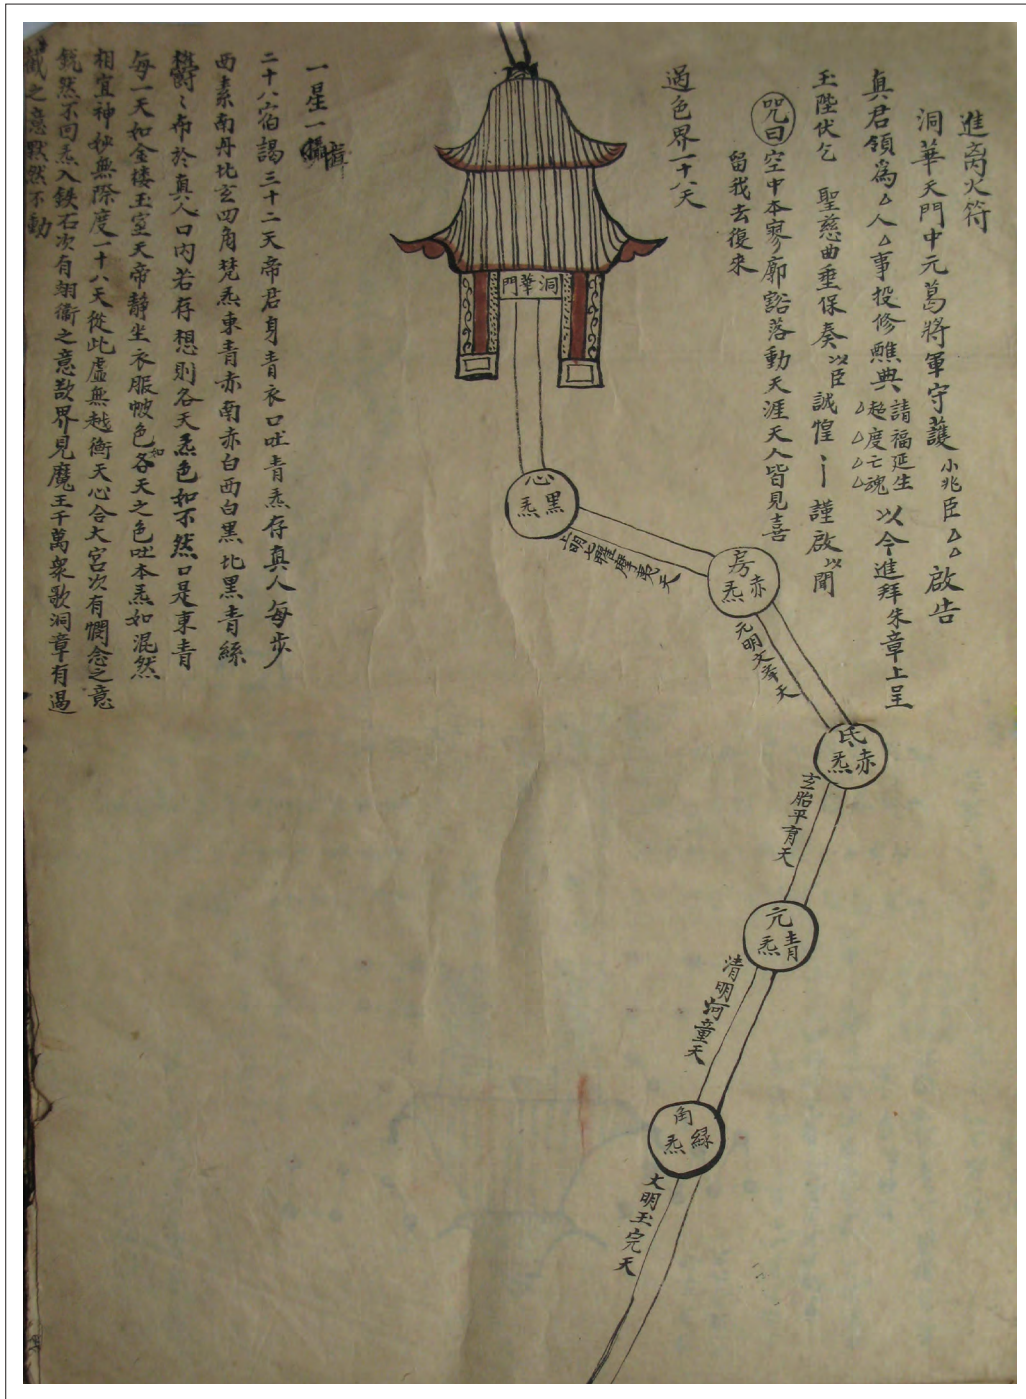 進离火符
洞華天門中元葛將軍守護 小兆臣△△ 啟告
真君領為△人△事投修醮典 請福延生 △超度亡魂△△△ 以今進拜朱章上呈
玉陛伏乞 聖慈曲垂保奏以臣誠惶〻丨謹啟以聞
咒曰 空中本寥廓豁落動天涯天人皆見喜
留我去復來
過色界一十八天
洞華門
心黑炁
上明七曜摩夷天
房赤炁
元明文舉天
氐赤炁
玄胎平育天
亢青炁
清明何童天
角綠炁
文明玉完天
一星一旗
二十八宿謁三十二天帝君身青衣口吐青炁存真人每步
西素南丹比玄四角梵炁東青赤南赤白西白黑比黑青綠
欝〻布於真人口內若存想則各天炁色如不然口是東青
每一天如金樓玉室天帝靜坐衣服帔色如各天之色吐本炁如混然
相宜神妙無際度一十八天從此虛無越衡天心合大宮次有憫念之意
銳然不回炁入鉄石次有翊衛之意歘界見魔王千萬衆歌洞章有遏
截之意默然不動